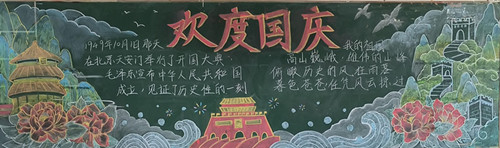 欢度国庆
1949年10月1日那天
在北京天安门举行了开国大典
毛泽东宣布中华人民共和国
成立,见证了历史性的一刻
我的祖国
高山巍峨 雄伟的山峰
俯瞰历史的风狂雨落
暮色苍茫 任凭风云掠过